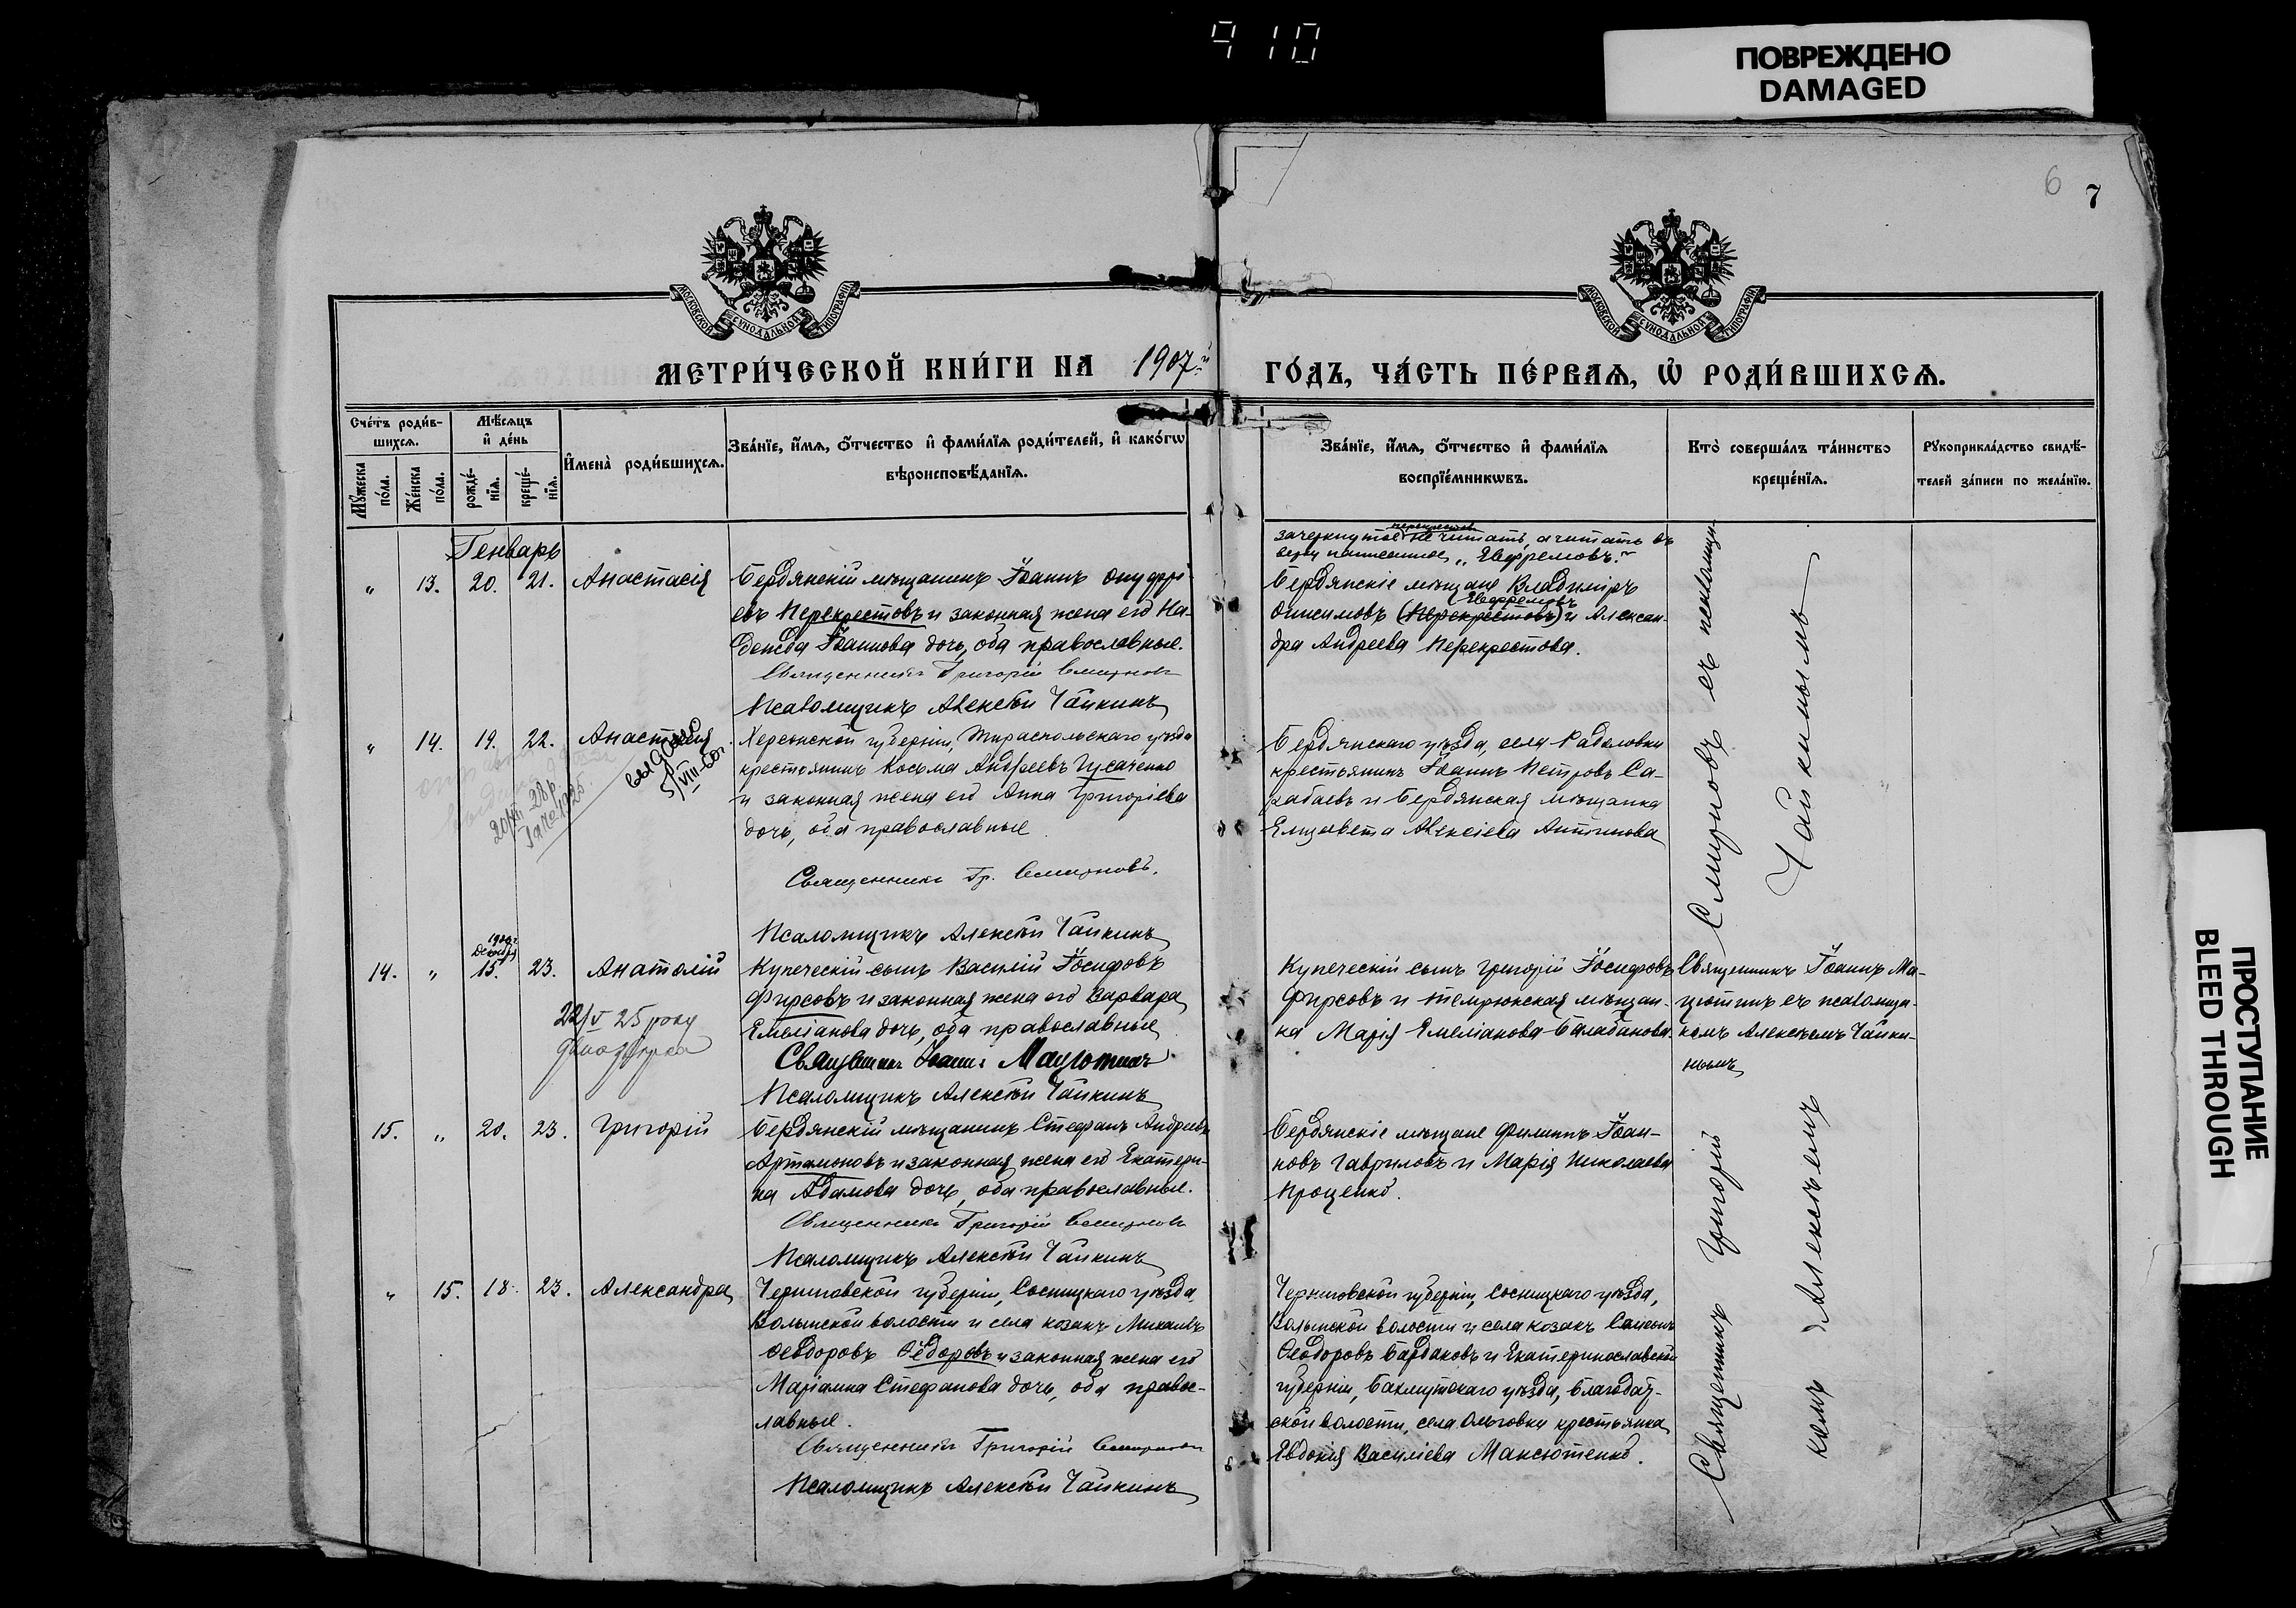 910
ПОВРЕЖДЕНО
DAMAGED
6 7
МОСКОВСКОЙ СѴНОДАЛЬНОЙ ТИПОГРАФІИ
МОСКОВСКОЙ СѴНОДАЛЬНОЙ ТИПОГРАФІИ
МЕТРИ́ЧЕСКОЙ КНИ́ГИ НА 1907й ГО́ДЪ, ЧА́СТЬ ПЕ́РВАѦ, Ѡ҆ РОДИ́ВШИХСѦ.
Сче́тъ роди́в-
шихсѧ.
Мꙋ́жеска по́ла.
Же́нска по́ла.
Мѣ́сѧцъ
и҆ де́нь
рожде́-
нїѧ.
креще́-
нїѧ.
И҆мена̀ роди́вшихсѧ.
Зва́нїе, и҆́мѧ, ѻ҆́тчество и҆ фами́лїѧ роди́телей, и҆ како́гѡ
вѣроисповѣ́данїѧ.
Зва́нїе, и҆́мѧ, ѻ҆́тчество и҆ фами́лїѧ
воспрїе́мникѡвъ.
Кто̀ соверша́лъ та́инство
креще́нїѧ.
Рꙋкоприкла́дство свидѣ́-
телей за́писи по жела́нїю.
Генварь
" 13. 20. 21. Анастасія
Бердянскій мѣщанинъ Іоаннъ Онуфрі-
евъ Перекрестовъ и законная жена его На-
дежда Іоаннова дочь, оба православные.
Священникъ Григорій Смирновъ
Псаломщикъ Алексѣй Чайкинъ
зачеркнутое перекрестовъ не читать, а читать въ
верху написанное „Ефремовъ."
Бердянскіе мѣщане Владиміръ
Онисимовъ (Перекрестовъ) Ефремовъ и Алексан-
дра Андреева Перекрестова.
" 14. 19. 22. Анастасія
выдано
5/VIII-60г.
Херсонской губерніи, Тираспольскаго уѣзда
крестьянинъ Косьма Андреевъ Гусаченко
и законная жена его Анна Григоріева
дочь, оба православные.
Священникъ Гр. Смирновъ.
Псаломщикъ Алексѣй Чайкинъ
Бердянскаго уѣзда, села
крестьянинъ Іоаннъ Петровъ Са-
рабаевъ и Бердянская мѣщанка
Елизавета Алексіева
14. " 15. 23. Анатолій
22/V 25 року
Купеческій сынъ Василій Іосифовъ
Фирсовъ и законная жена его Варвара
Емеліанова дочь, оба православные
Священникъ Іоаннъ Мацютинъ
Псаломщикъ Алексѣй Чайкинъ
Купеческій сынъ Григорій Іосифовъ
Фирсовъ и темрюкская мѣщан-
ка Марія Емеліанова Балабанова.
Священникъ Іоаннъ Ма-
цютинъ съ псаломщи-
комъ Алексѣемъ Чайки-
нымъ
15. " 20. 23. Григорій
Бердянскій мѣщанинъ Стефанъ Андреевъ
Артамоновъ и законная жена его Екатери-
на Адамова дочь, оба православные.
Священникъ Григорій Смирновъ
Псаломщикъ Алексѣй Чайкинъ
Бердянскіе мѣщане Филиппъ Іоан-
новъ Гавриловъ и Марія Николаева
Проценко.
" 15. 18. 23. Александра
Черниговской губерніи, Сосницкаго уѣзда,
Волынской волости и села козакъ Михаилъ
Ѳеодоровъ Ѳедоровъ и законная жена его
Маріамна Стефанова дочь, оба правос-
лавные.
Священникъ Григорій Смирновъ
Псаломщикъ Алексѣй Чайкинъ
Черниговской губерніи, Сосницкаго уѣзда,
Волынской волости и села козакъ
Ѳеодоровъ Бардаковъ и Екатеринославской
губерніи, Бахмутскаго уѣзда, Благодат-
ской волости, села Ольговки крестьянка
Евдокія Василіева Максютенко.
Священникъ Григорій Смирновъ съ псаломщи-
комъ Алексѣемъ Чайкинымъ
ПРОСТУПАНИЕ
BLEED THROUGH